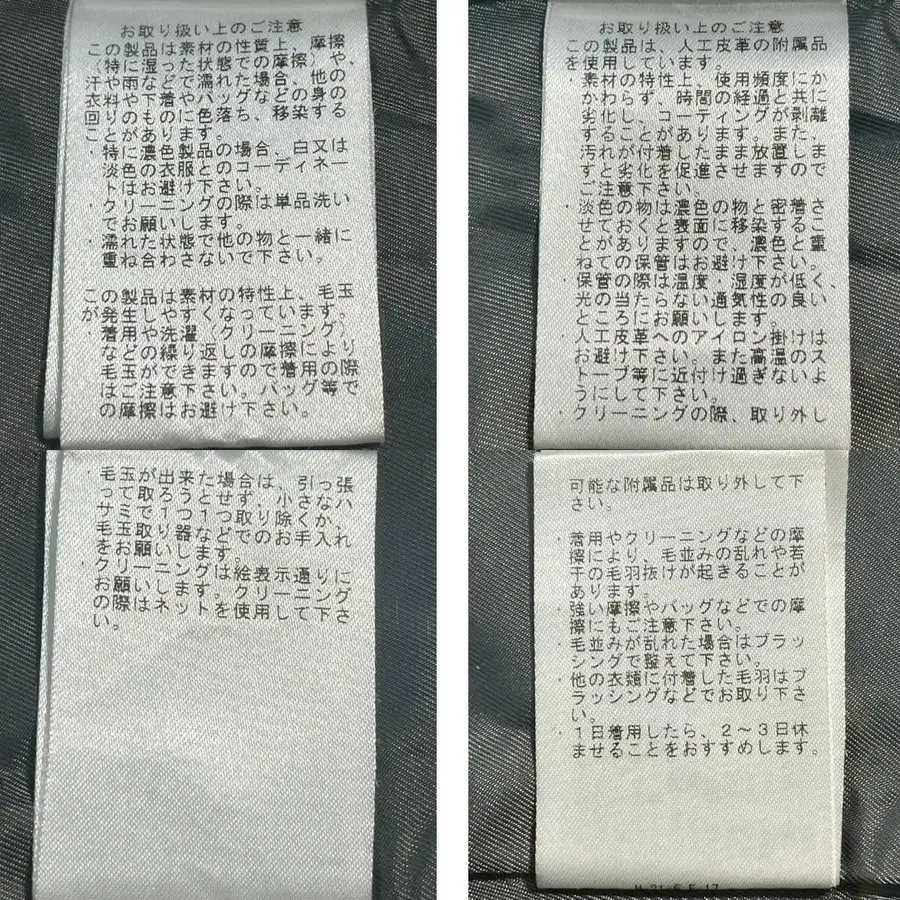 お取り扱い上のご注意
この製品は素材の性質上、摩擦
（特に湿った状態での摩擦）や、
汗や雨などで濡れた場合、他の
衣料や下着やバッグなどの身の
回りのものに色落ち、移染する
ことがあります。
・特に濃色製品の場合、白又は
淡色の衣服とのコーディネー
トはお避け下さい。
・クリーニングの際は単品洗い
でお願いします。
・濡れた状態で他の物と一緒に
重ね合わさないで下さい。
この製品は素材の特性上、毛玉
が発生しやすくなっています。
着用や洗濯（クリーニング）
などの繰り返しの摩擦により
毛玉ができますので着用の際
はご注意下さい。バッグ等で
の摩擦はお避け下さい。
・毛玉が出来た場合は、引っ張
って取ろうとせず、小さなハ
サミで１つ１つ取り除くか、
毛玉取り器などでのお手入れ
をお願いします。
・クリーニングは絵表示通りに
お願いします。クリーニング
の際はネットを使用して下さ
い。
お取り扱い上のご注意
この製品は、人工皮革の附属品
を使用しています。
・素材の特性上、使用頻度にか
かわらず、時間の経過と共に
劣化し、コーティングが剥離
することがあります。また、
汚れが付着したまま放置しま
すと劣化を促進させますので
ご注意下さい。
・淡色の物は濃色の物と密着さ
せておくと表面に移染するこ
とがありますので、濃色と重
ねての保管はお避け下さい。
・保管の際は温度・湿度が低く、
光の当たらない通気性の良い
ところにお願いします。
・人工皮革へのアイロン掛けは
お避け下さい。また高温のス
トーブ等に近付け過ぎないよ
うにして下さい。
・クリーニングの際、取り外し
可能な附属品は取り外して下
さい。
・着用やクリーニングなどの摩
擦により、毛並みの乱れや若
干の毛羽抜けが起きることが
あります。
・強い摩擦やバッグなどでの摩
擦にもご注意下さい。
・毛並みが乱れた場合はブラッ
シングで整えて下さい。
・他の衣類に付着した毛羽はブ
ラッシングなどでお取り下さ
い。
・１日着用したら、２〜３日休
ませることをおすすめします。